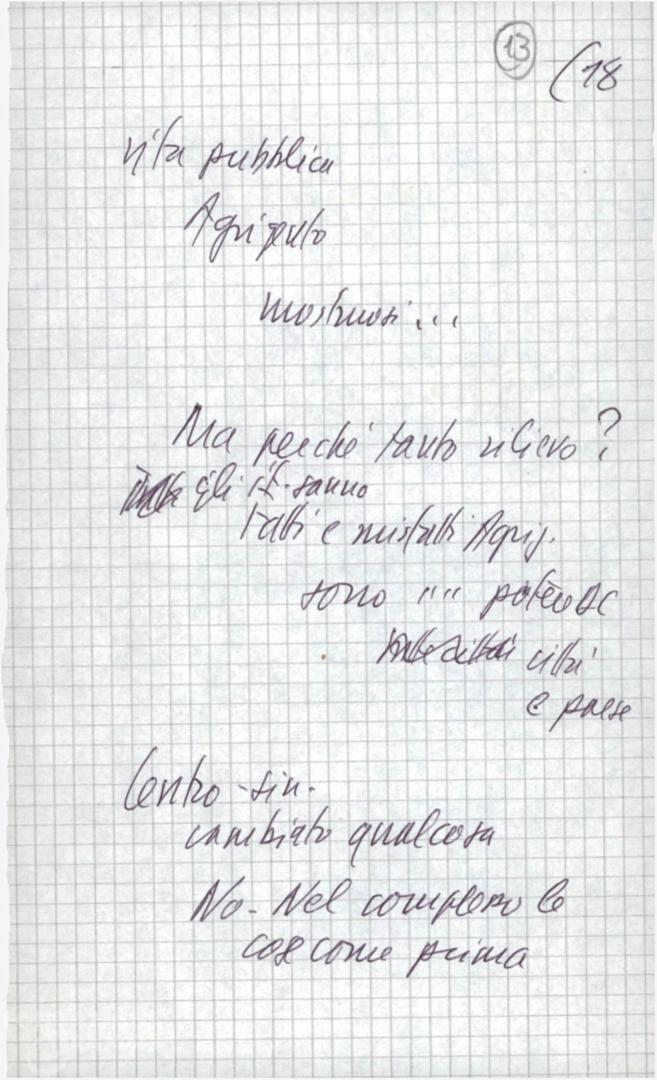 13 (18
vita pubblica
Agrigento
mostruosi...
Ma perché tanto rilievo?
gli it. sanno
fatti e misfatti Agrig.
sono "" potere DC
città
e paese
Centro-sin.
cambiato qualcosa
No - Nel complesso le
cose come prima